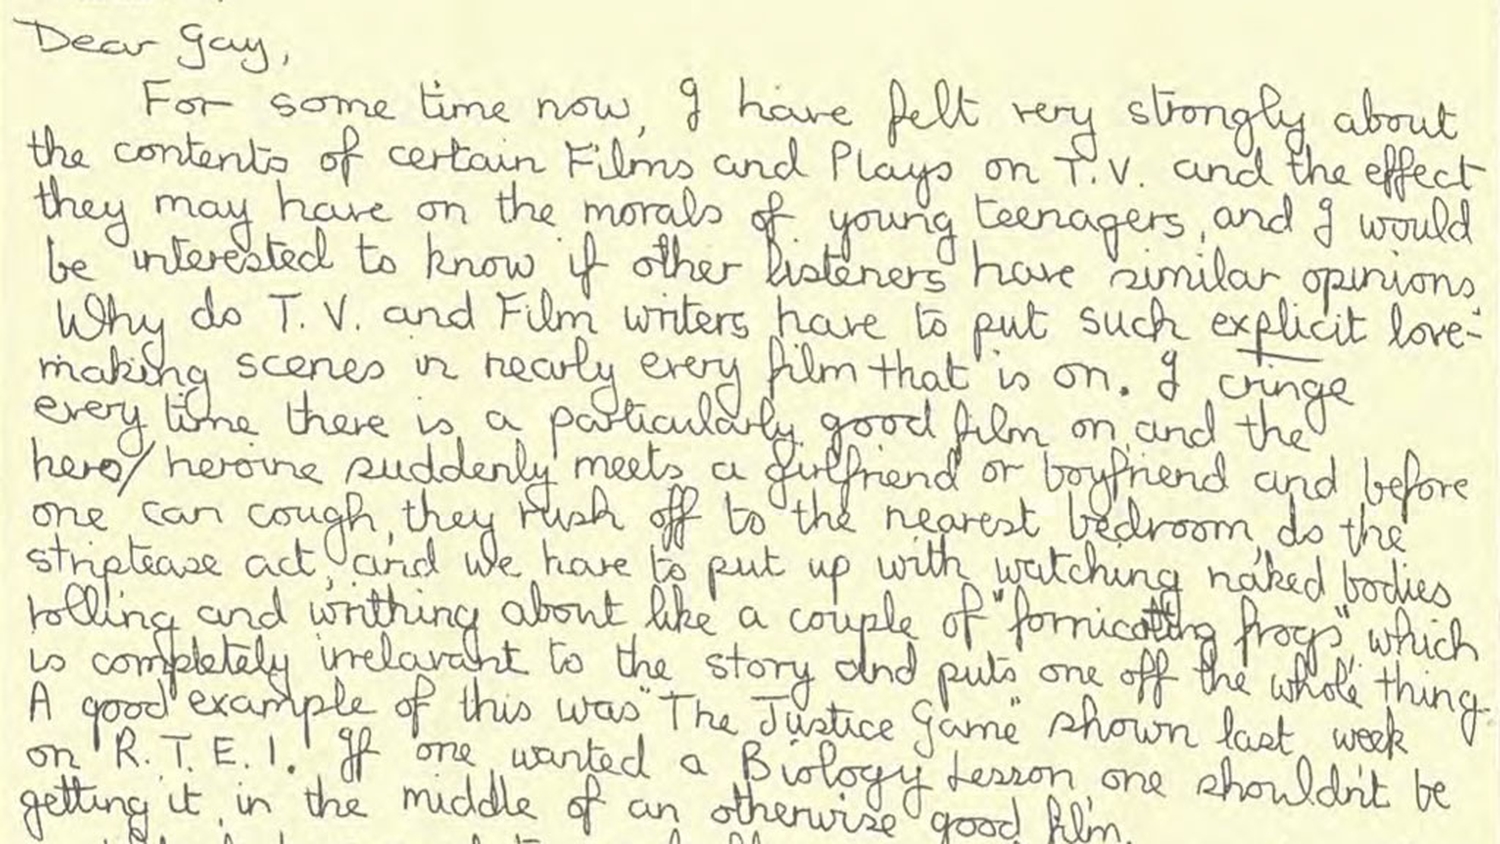 Dear Gay,
For some time now, I have felt very strongly about
the contents of certain Films and Plays on T.V. and the effect
they may have on the morals of young teenagers, and I would
be interested to know if other listeners have similar opinions
Why do T.V. and Film writers have to put such explicit love-
making scenes in nearly every film that is on. I cringe
every time there is a particularly good film on, and the
hero/heroine suddenly meets a girlfriend or boyfriend and before
one can cough, they rush off to the nearest bedroom, do the
striptease act, and we have to put up with watching naked bodies
rolling and writhing about like a couple of "fornicating frogs" which
is completely irrelavant to the story and puts one off the whole thing
A good example of this was "The Justice Game" shown last week
on R.T.E.1. If one wanted a Biology Lesson one shouldn't be
getting it, in the middle of an otherwise good film.